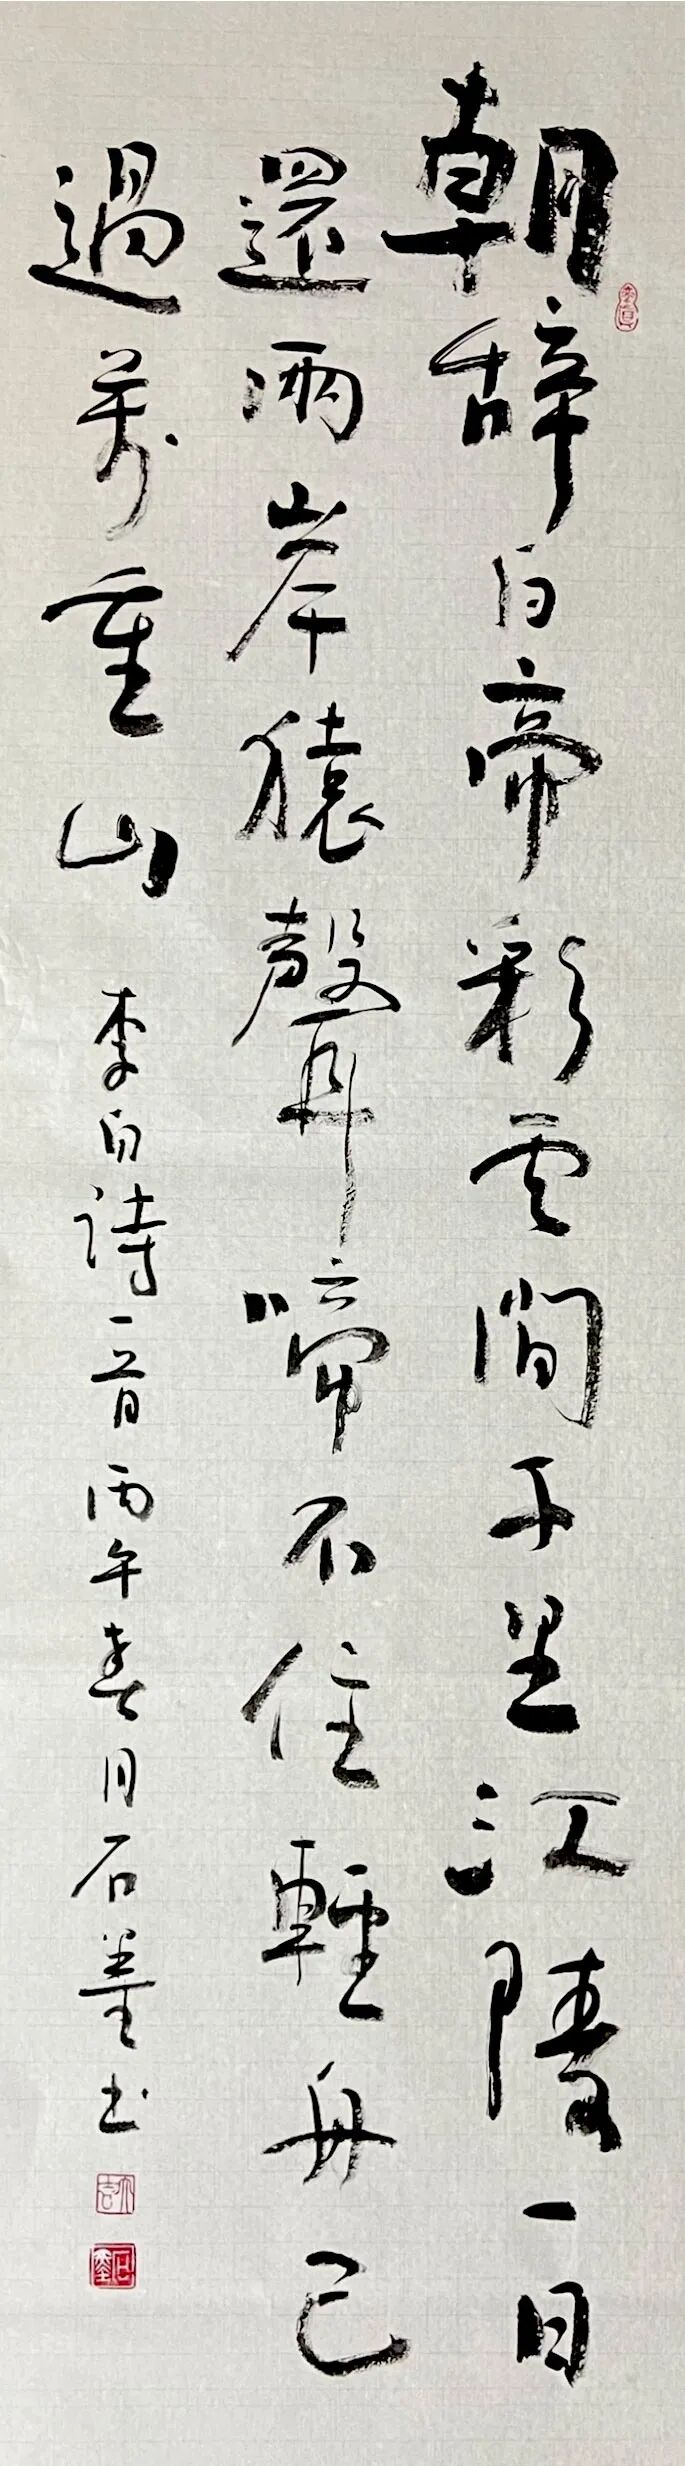 朝辞白帝彩云間千里江陵一日
還兩岸猿聲啼不住輕舟已
過万重山 李白詩一首 丙午春月石墨书